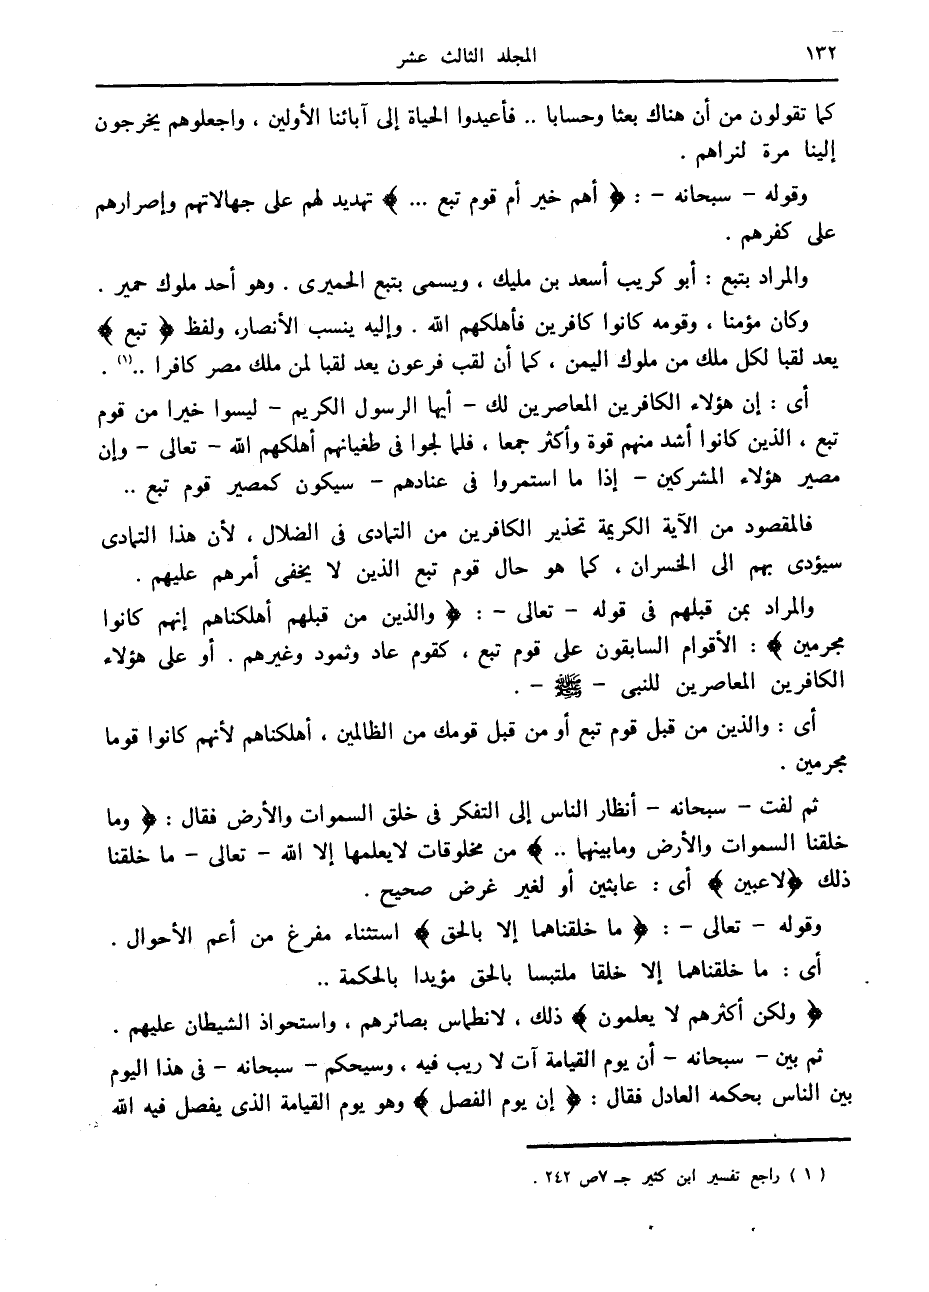 ١٣٢
المجلد الثالث عشر
كما تقولون من أن هناك بعثا وحسابا .. فأعيدوا الحياة إلى آبائنا الأولين ، واجعلوهم يخرجون
إلينا مرة لنراهم .
وقوله – سبحانه – : ﴿ أهم خير أم قوم تبع ... ﴾ تهديد لهم على جهالاتهم وإصرارهم
على كفرهم .
والمراد بتبع : أبو كريب أسعد بن مليك ، ويسمى بتبع الحميرى . وهو أحد ملوك حمير .
وكان مؤمنا ، وقومه كانوا كافرين فأهلكهم الله . وإليه ينسب الأنصار، ولفظ ﴿ تبع ﴾
يعد لقبا لكل ملك من ملوك اليمن ، كما أن لقب فرعون يعد لقبا لمن ملك مصر كافرا ..(١) .
أى : إن هؤلاء الكافرين المعاصرين لك – أيها الرسول الكريم – ليسوا خيرا من قوم
تبع ، الذين كانوا أشد منهم قوة وأكثر جمعا ، فلما لجوا فى طغيانهم أهلكهم الله – تعالى – وإن
مصير هؤلاء المشركين – إذا ما استمروا فى عنادهم – سيكون كمصير قوم تبع ..
فالمقصود من الآية الكريمة تحذير الكافرين من التمادى فى الضلال ، لأن هذا التمادى
سيؤدى بهم الى الخسران ، كما هو حال قوم تبع الذين لا يخفى أمرهم عليهم .
والمراد بمن قبلهم فى قوله – تعالى – : ﴿ والذين من قبلهم أهلكناهم إنهم كانوا
مجرمين ﴾ : الأقوام السابقون على قوم تبع ، كقوم عاد وثمود وغيرهم . أو على هؤلاء
الكافرين المعاصرين للنبى – ﷺ – .
أى : والذين من قبل قوم تبع أو من قبل قومك من الظالمين ، أهلكناهم لأنهم كانوا قوما
مجرمين .
ثم لفت – سبحانه – أنظار الناس إلى التفكر فى خلق السموات والأرض فقال : ﴿ وما
خلقنا السموات والأرض ومابينهما .. ﴾ من مخلوقات لايعلمها إلا الله – تعالى – ما خلقنا
ذلك ﴿لاعبين ﴾ أى : عابثين أو لغير غرض صحيح .
وقوله – تعالى – : ﴿ ما خلقناهما إلا بالحق ﴾ استثناء مفرغ من أعم الأحوال .
أى : ما خلقناهما إلا خلقا ملتبسا بالحق مؤيدا بالحكمة ..
﴿ ولكن أكثرهم لا يعلمون ﴾ ذلك ، لانطماس بصائرهم ، واستحواذ الشيطان عليهم .
ثم بين – سبحانه – أن يوم القيامة آت لا ريب فيه ، وسيحكم – سبحانه – فى هذا اليوم
بين الناس بحكمه العادل فقال : ﴿ إن يوم الفصل ﴾ وهو يوم القيامة الذى يفصل فيه الله
( ١ ) راجع تفسير ابن كثير جـ ٧ص ٢٤٢ .